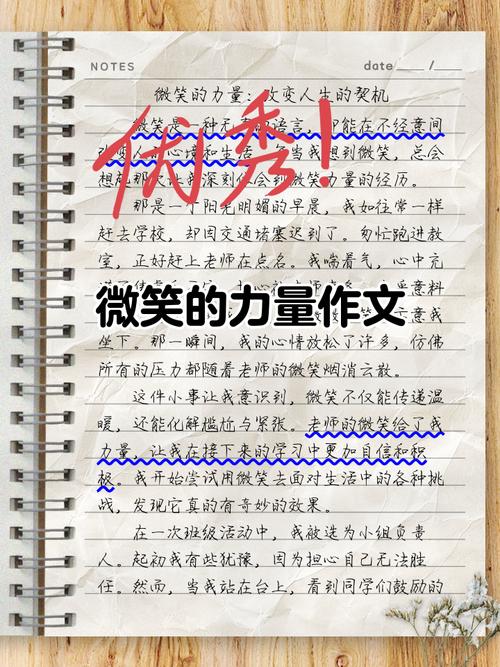 NOTES
date / 
微笑的力量:改变人生的契机
微笑是一种无声的语言,却能在不经意间
心境和生活。每当我想到微笑,总会
想起那次让我深刻体会到微笑力量的经历。
那是一个阳光明媚的早晨,我如往常一样
赶去学校,却因交通堵塞迟到了。匆忙跑进教
室,正好赶上老师在点名。我喘着气,心中充
优秀!
意料
微笑的力量作文
示意我
坐下。那一瞬间,我的心情放松了许多,仿佛
所有的压力都随着老师的微笑烟消云散。
这件小事让我意识到,微笑不仅能传递温
暖,还能化解尴尬与紧张。老师的微笑给了我
力量,让我在接下来的学习中更加自信和积
极。我开始尝试用微笑去面对生活中的各种挑
战,发现它真的有奇妙的效果。
在一次班级活动中,我被选为小组负责
人。起初我有些犹豫,因为担心自己无法胜
任。然而,当我站在台上,看到同学们鼓励的